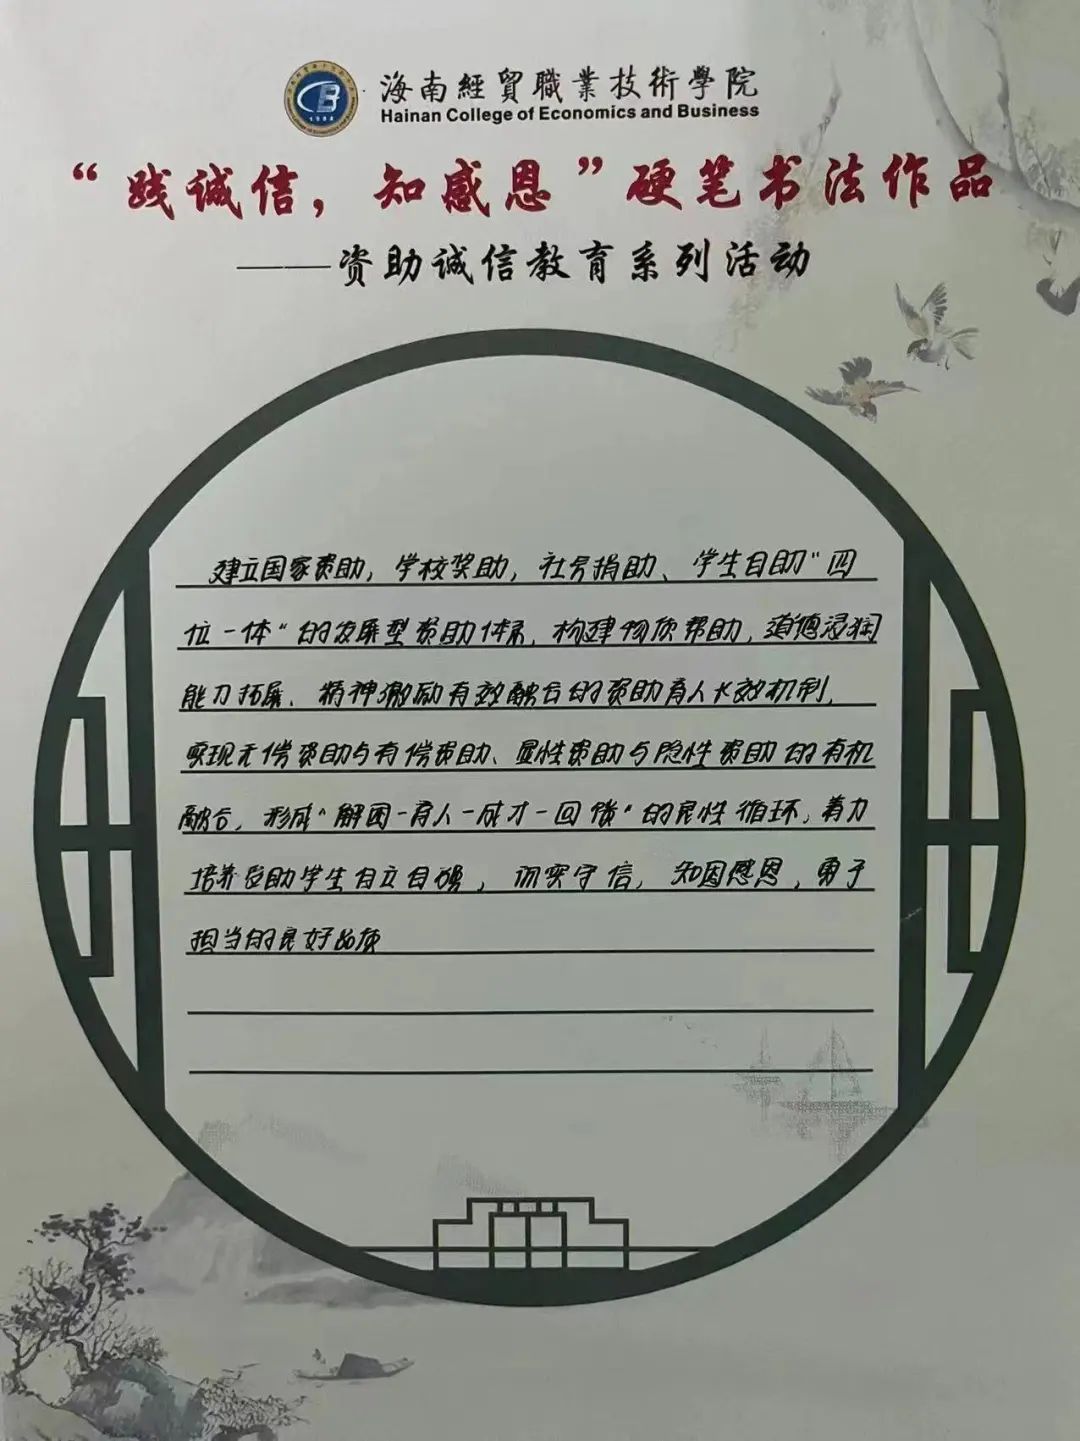 海南經貿職業技術學院
Hainan College of Economics and Business
“践诚信，知感恩”硬笔书法作品
——资助诚信教育系列活动
建立国家资助，学校奖助，社会捐助、学生自助“四
位一体“的发展型资助体系，构建物质帮助，道德浸润
能力拓展、精神激励有效融合的资助育人长效机制，
实现无偿资助与有偿资助、显性资助与隐性资助的有机
融合，形成“解困-育人-成才-回馈“的良性循环，着力
培养受助学生自立自强，诚实守信，知因感恩，勇于
担当的良好品质